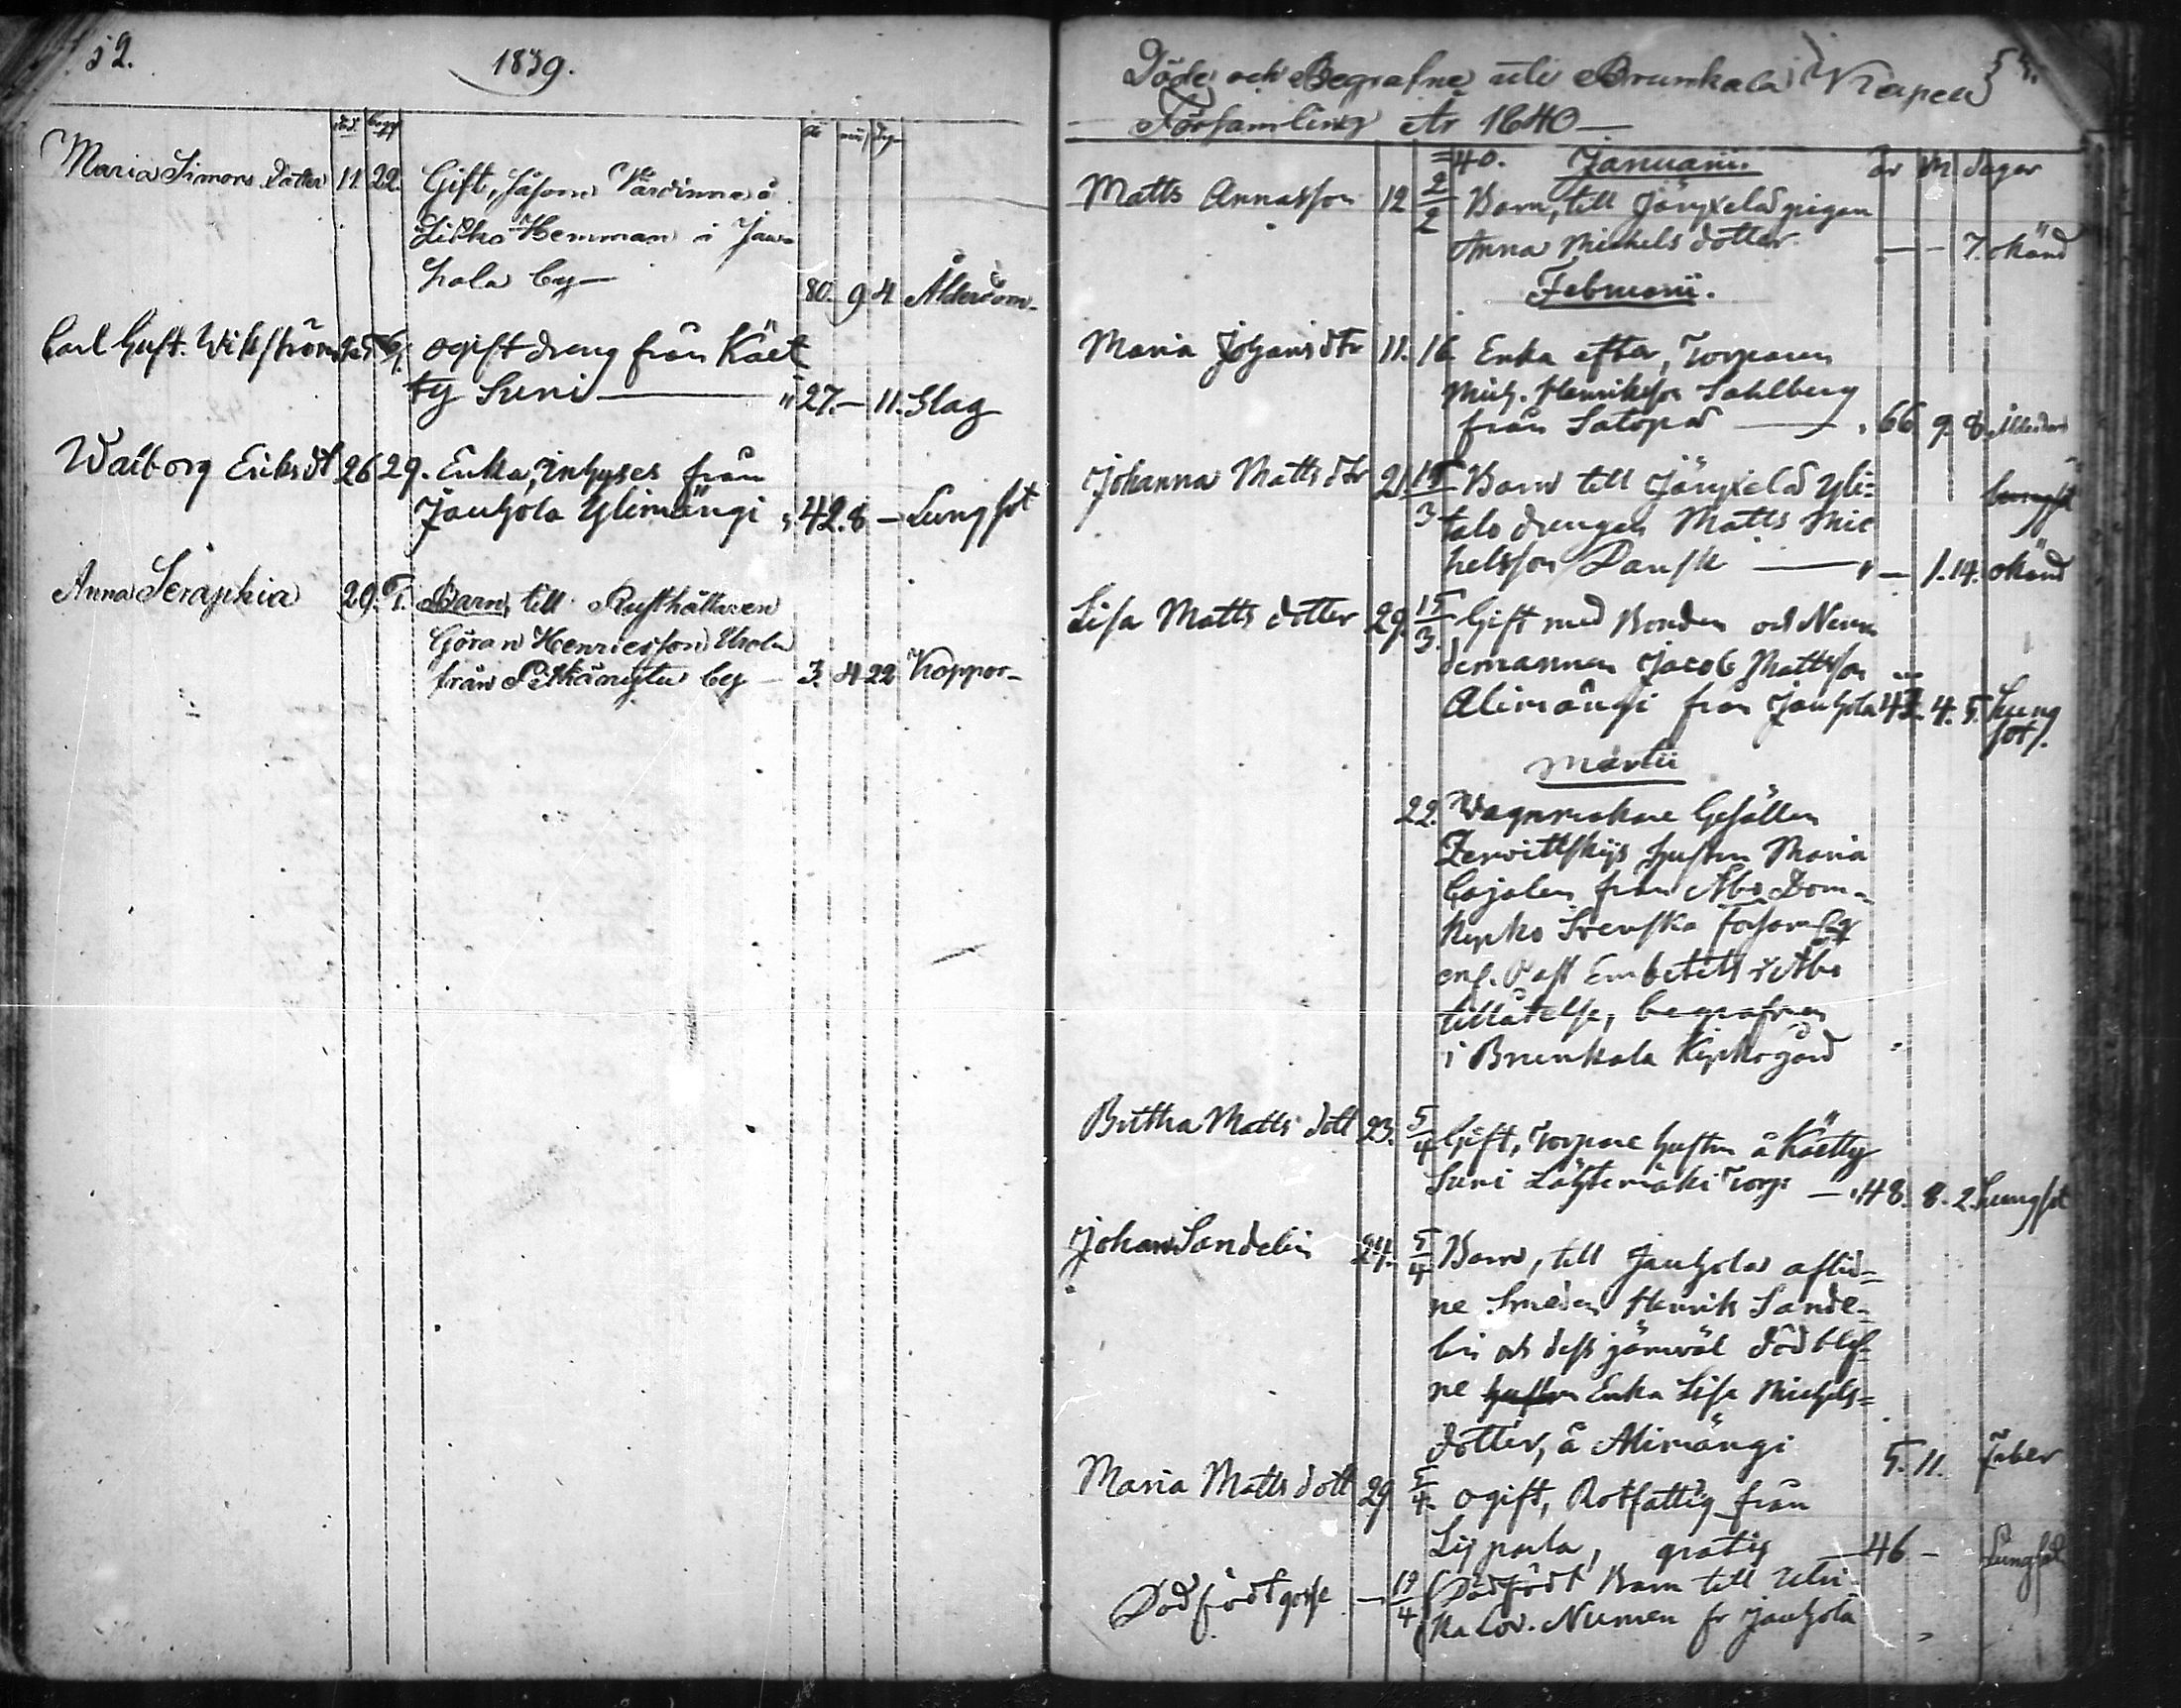 52.
1839.
död. begr
år mån dag
Maria Simons Dotter 11. 22. Gift, såsom Värdinna å
Hemman i Jau=
hola by — 80. 9 4 Ålderdom.
Carl Gust. Wikström ogift dreng från Käet
ty Suni — " 27. — 11. Slag
Walborg Eriksdt 26 29. Enka, Inhyses från
Jauhola Ylimängi " 42. 8. — Lungsot
Anna Seraphia 29. Barn, till Rusthållaren
Göran Henricsson
från by — 3. 4 22 Koppor.
Döde och Begrafne uti Brunkala Kapell
Församling År 1840 —
40. Januarii. år M dagar
Matts Annasson 12 2/2 Barn, till Järyxelä pigan
Anna Michels dotter. — — 7. okänd
Februarii.
Maria Johansdtr 11. 16 Enka efter, Torparen
Mich. Henriksson Sahlberg
från Satopä — " 66 9. 8. Ålderdom
Johanna Mattsdtr 21 15/3 Barn till Järyxelä Yli=
talo drengen Matts Mic
helsson Dansk — " — 1. 14. okänd
Lisa Matts dotter 29. 15/3. Gift med Bonden och Nämn
demannen Jacob Mattsson
Alimängi från Jauhola 4. 5. Lung
sot.
Martii
22. Wagnmakare Gesällen
hustru Maria
Cajalen från Åbo Dom=
kyrko Svenska Församlg
enl. Past Embetets i Åbo
tillåtelse, begrafven
i Brunkala Kyrkogård
Britha Matts dott 23. 5/4 Gift, Torpare hustru å Käetty
Suni Lähtemäki Torp — " 48. 8. 2. Lungsot
Johan Sandelin 24. 5/4 Barn, till Jauhola aflid=
ne Smeden Henrik Sande=
lin och dess jämväl död blef=
ne hustru Enka Lisa Michels=
dotter, å Alimängi 5. 11. feber
Maria Matts dott 29 5/4. ogift, Rotfattig från
Lijpola, gratis — 46 — Lungsot
Dödfödt gosse — 19/4 Dödfödt Barn till Ulri=
ka Lov. Numen fr Jauhola